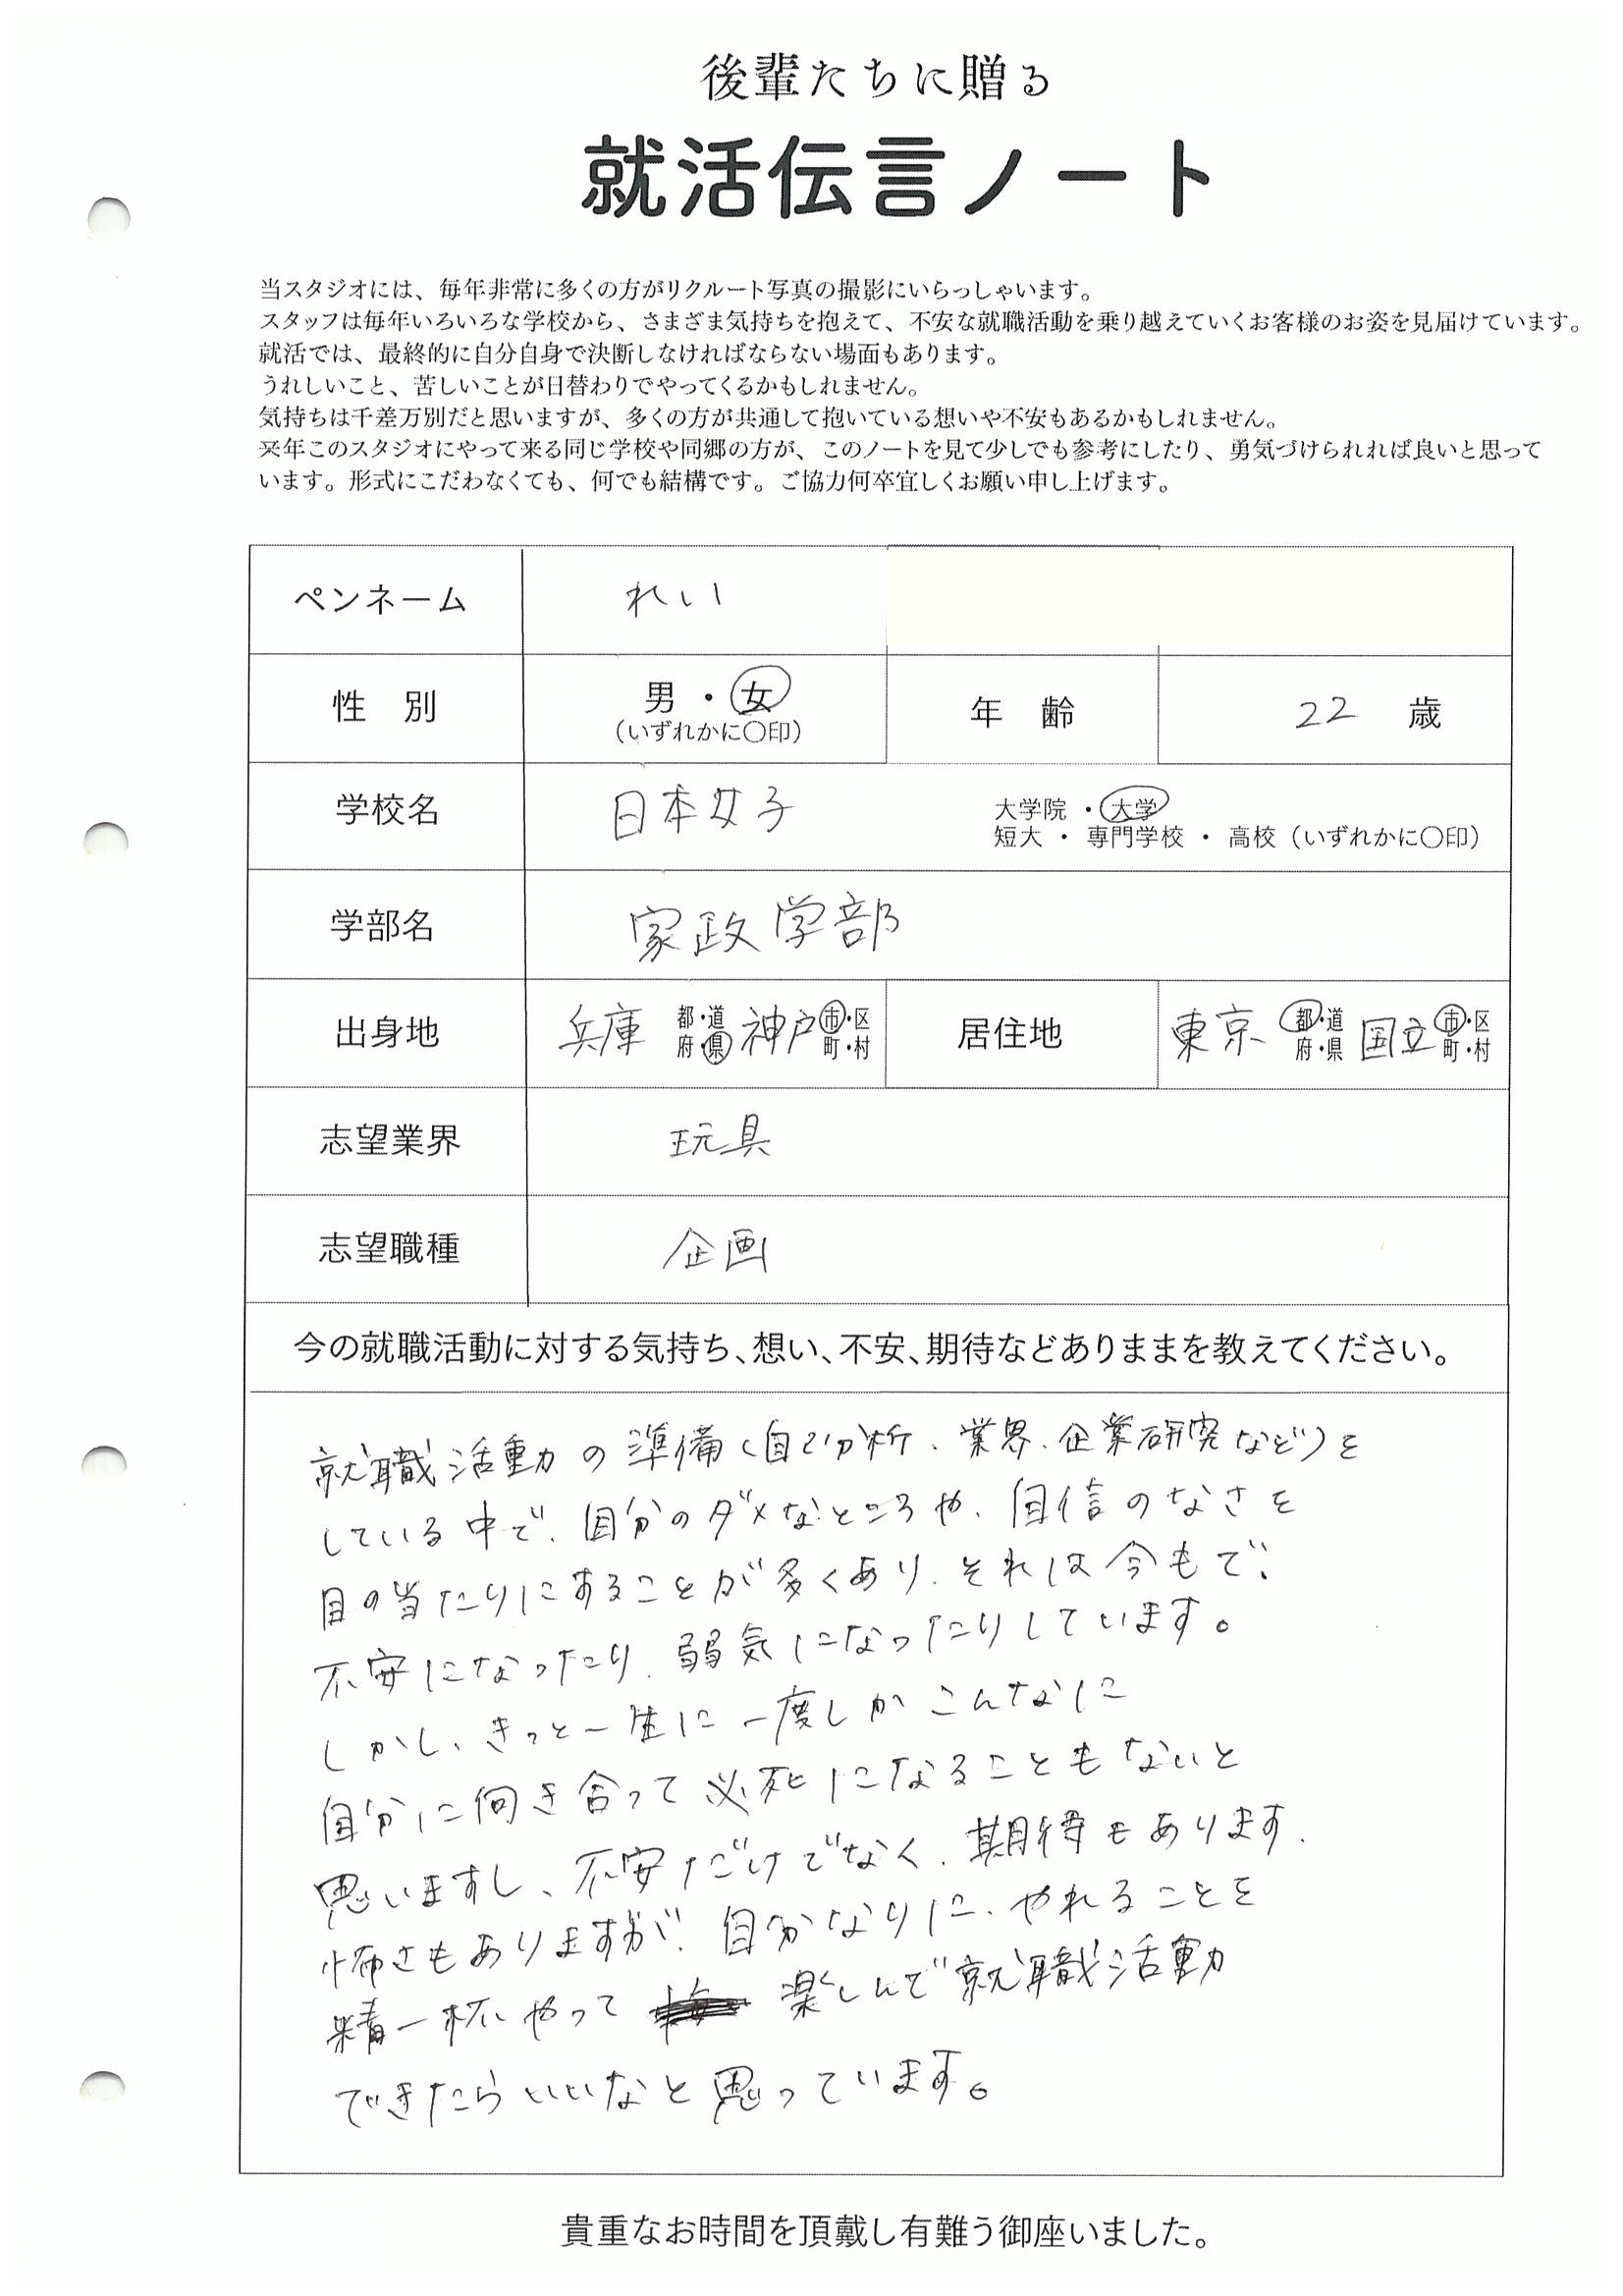 後輩たちに贈る
就活伝言ノート
当スタジオには、毎年非常に多くの方がリクルート写真の撮影にいらっしゃいます。
スタッフは毎年いろいろな学校から、さまざま気持ちを抱えて、不安な就職活動を乗り越えていくお客様のお姿を見届けています。
就活では、最終的に自分自身で決断しなければならない場面もあります。
うれしいこと、苦しいことが日替わりでやってくるかもしれません。
気持ちは千差万別だと思いますが、多くの方が共通して抱いている想いや不安もあるかもしれません。
来年このスタジオにやって来る同じ学校や同郷の方が、このノートを見て少しでも参考にしたり、勇気づけられれば良いと思って
います。形式にこだわなくても、何でも結構です。ご協力何卒宜しくお願い申し上げます。
ペンネーム れい
性 別 男・女 (いずれかに〇印) 年 齢 22 歳
学校名 日本女子 大学院・大学
短大・専門学校・高校(いずれかに〇印)
学部名 家政学部
出身地 兵庫 都・道 府・県 神戸 市・区 町・村 居住地 東京 都・道 府・県 国立 市・区 町・村
志望業界 玩具
志望職種 企画
今の就職活動に対する気持ち、想い、不安、期待などありままを教えてください。
就職活動の準備(自己分析、業界、企業研究など)を
している中で、自分のダメなところや、自信のなさを
目の当たりにすることが多くあり、それは今もで、
不安になったり、弱気になったりしています。
しかし、きっと一生に一度しかこんなに
自分に向き合って必死になることもないと
思いますし、不安だけでなく、期待もあります、
怖さもありますが、自分なりに、やれることを
精一杯やって 楽しんで就職活動
できたらいいなと思っています。
貴重なお時間を頂戴し有難う御座いました。